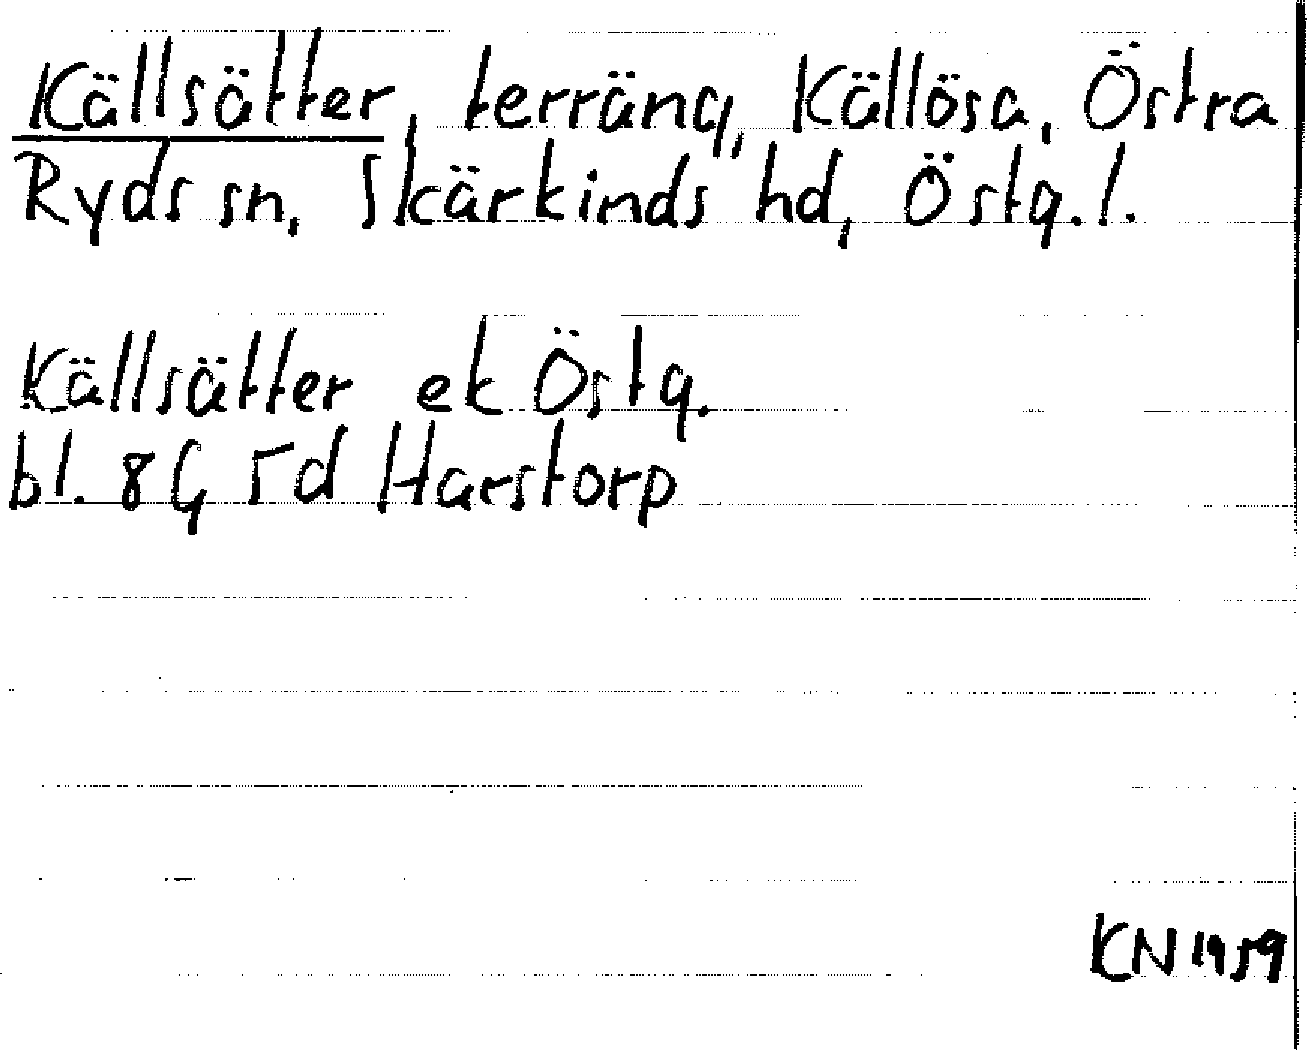 Källsätter, terräng, Källösa, Östra
Ryds sn, Skärkinds hd, Östg. l.
Källsätter ek Östg.
bl. 8G 5d Harstorp
KN 1959